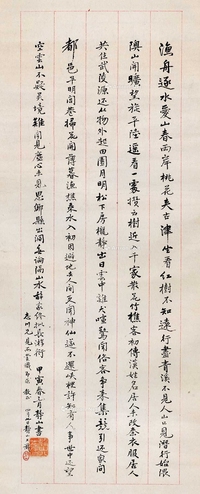 漁舟逐水愛山春兩岸桃花夾古津坐看紅樹不知遠行盡青溪不見人山口潛行始隈
隩山開曠望旋平陸遙看一處攢雲樹近入千家散花竹樵客初傳漢姓名居人未改秦衣服居人
共住武陵源還從物外起田園月明松下房櫳靜出日雲中雞犬喧驚聞俗客爭來集競引還家問
都邑平明閭巷掃花開薄暮漁樵乘水入初因避地去人間更聞神仙遂不還峽裡誰知有人事世中遙望
空雲山不疑靈境難聞見塵心未盡思鄉縣出洞無論隔山水辭家終擬長游衍 甲寅春三月靜山書